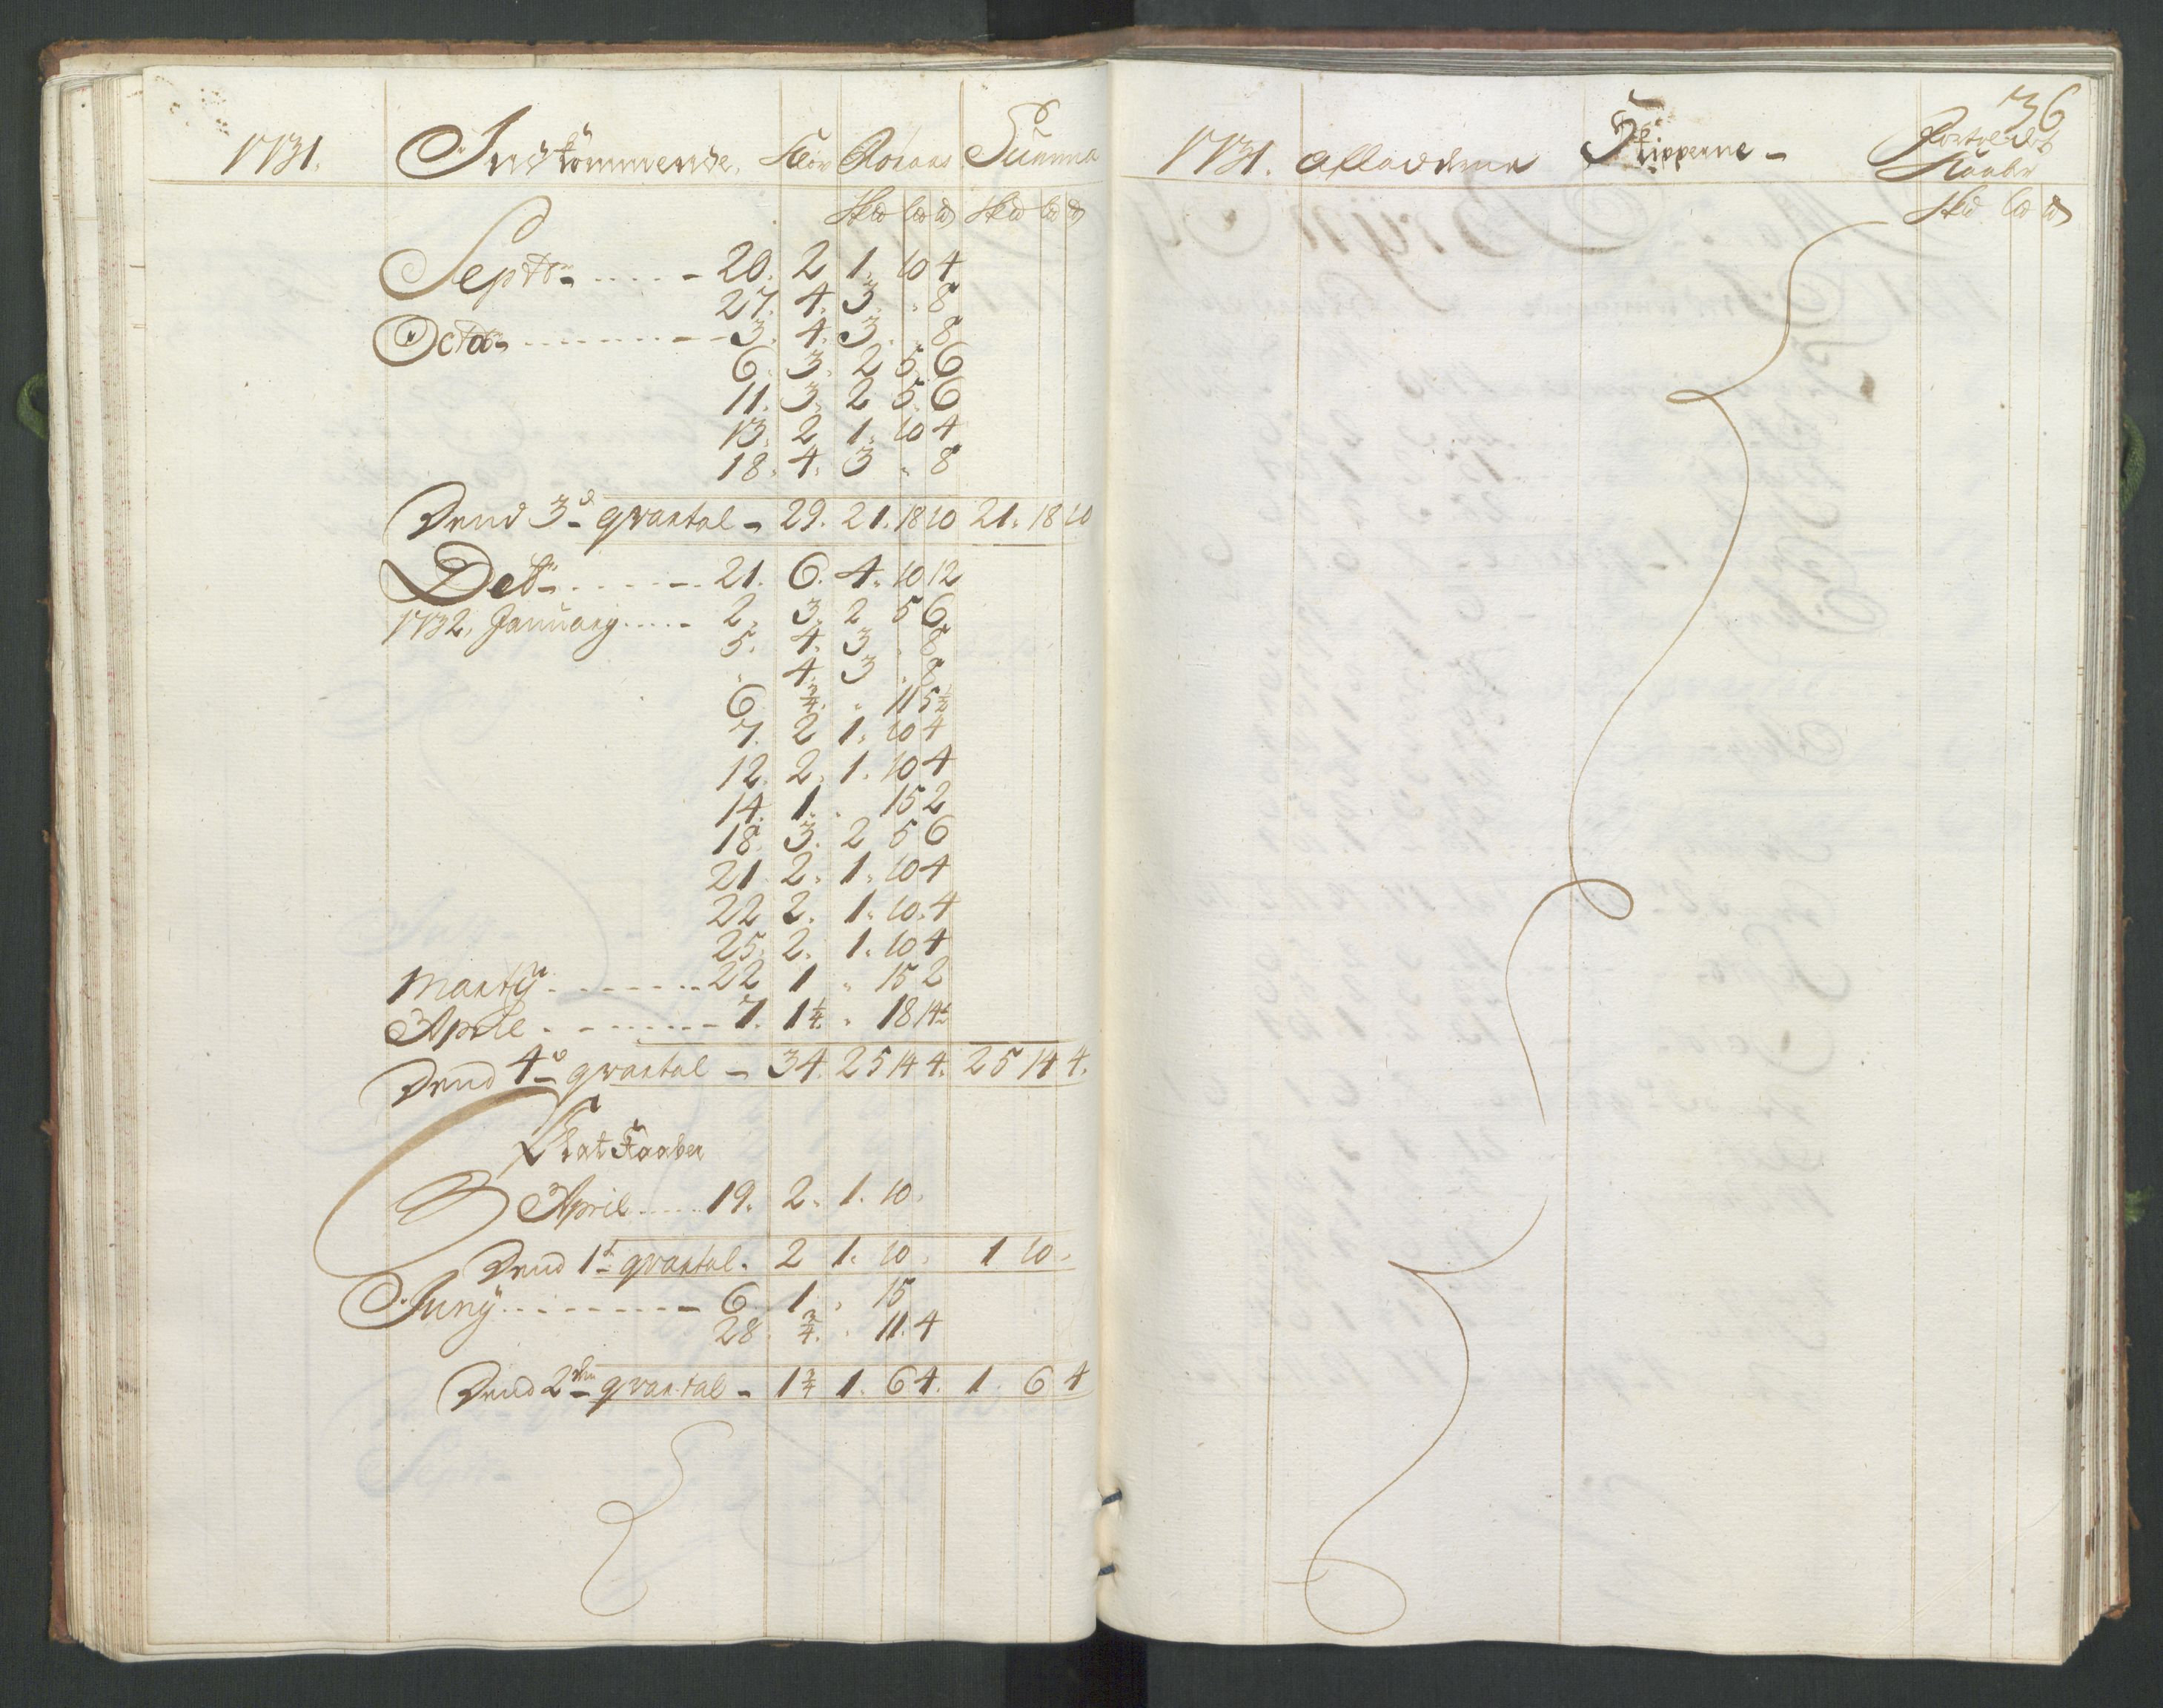 1731. Indkommende. Slör Rosans Summa
Skd lod ℔ Skd lod ℔
Septr. 20. 2 1. 10 4
27. 4. 3 „ 8
Octbr. 3. 4. 3 „ 8
6. 3. 2 5 6
11. 3. 2 5 6
13. 2 1. 10 4
18. 4. 3 „ 8
Dend 3d qvartal 29. 21. 18 10 21. 18 10
Det 21. 6. 4. 10 12
1732, January 2. 3. 2 5 6
5. 4. 3 „ 8
„ 4. 3 „ 8
6 3/4. „ 11 5 1/2
7. 2 1. 10 4
12. 2. 1. 10 4
14. 1. „ 15 2
18. 3. 2 5 6
21 2. 1. 10 4
22 2. 1. 10. 4
25. 2. 1. 10 4
Marty 22 1 „ 15 2
April 7. 1 1/4 „ 18 14 1/2
Dend 4d qvartal 34. 25 14 4. 25 14 4.
Plat Kaaber
April 19. 2. 1. 10.
Dend 1t qvartal. 2 1. 10. 1 10.
Juny 6. 1. „ 15
28. 3/4. „ 11. 4
Dend 2den qvartal 1 3/4 1. 6 4. 1. 6 4
36
1731. Afladerne Skipperne Kaaber
Skd lod ℔